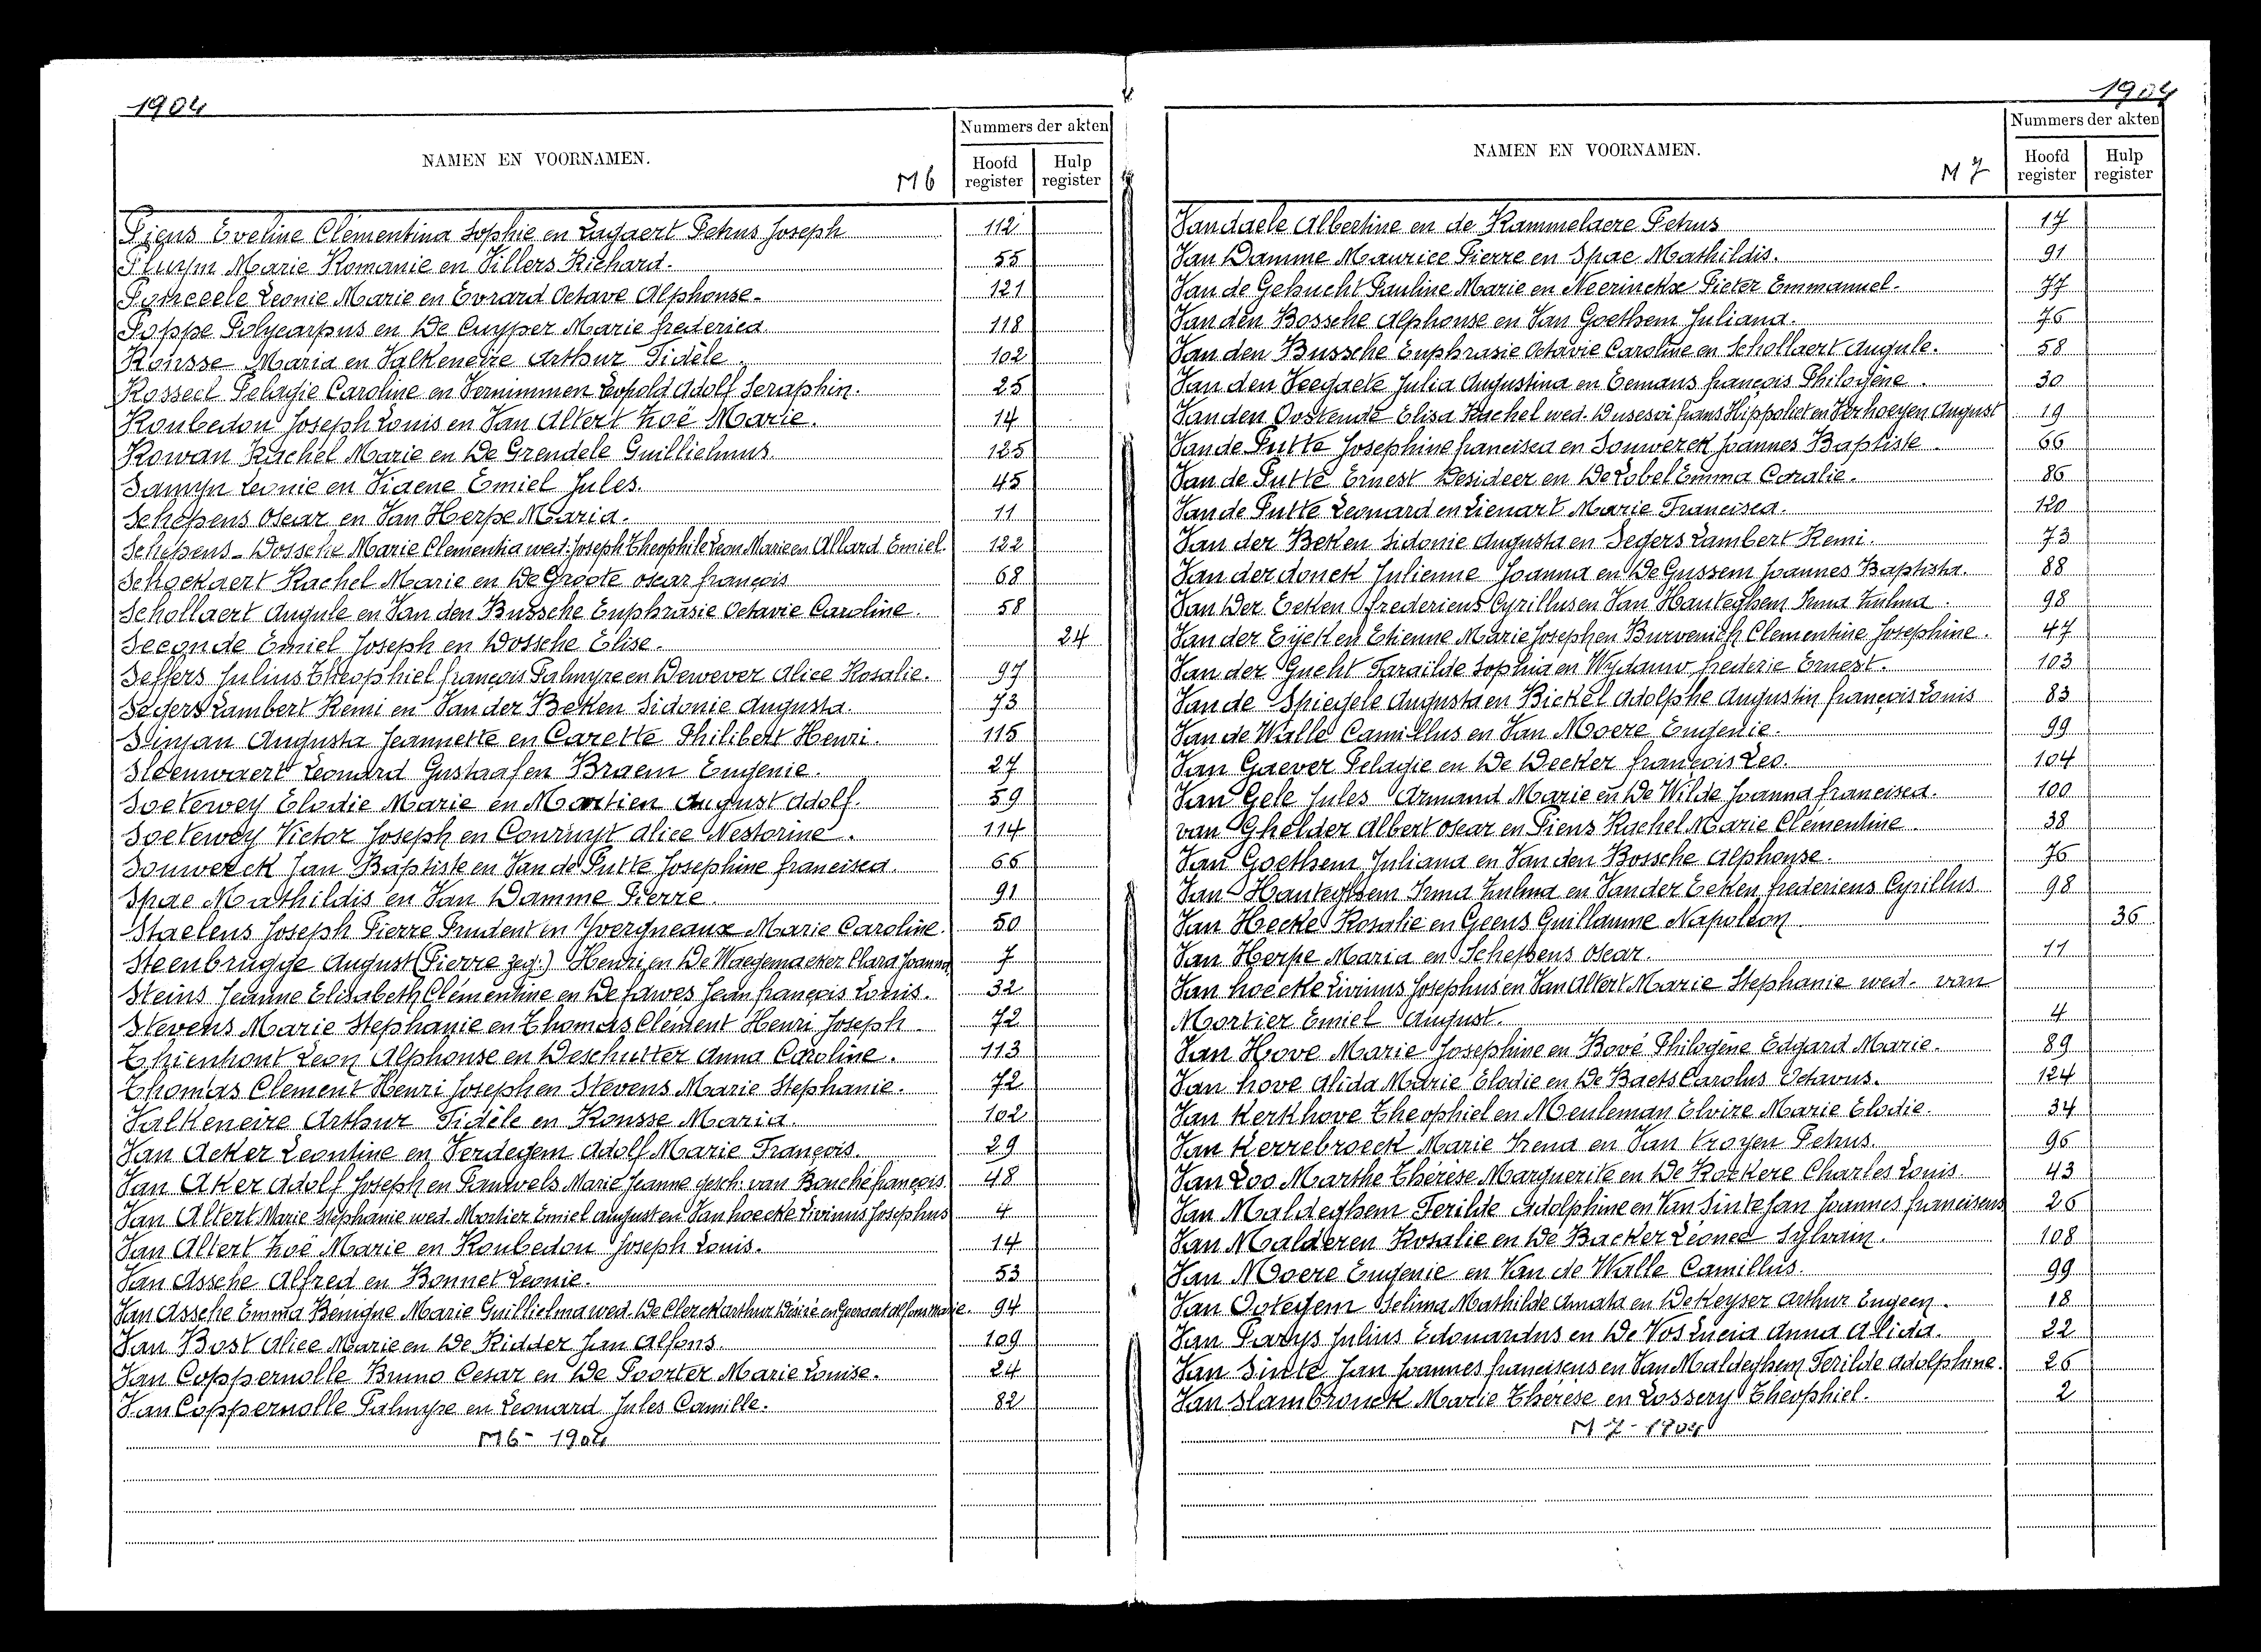 1904
NAMEN EN VOORNAMEN.
M6
Nummers der akten
Hoofd register
Hulp register
Piens Eveline Clementina Sophie en Lagaert Petrus Joseph 112
Pluym Marie Romanie en Villers Richard. 55
Ponceele Leonie Marie en Evrard Octave Alphonse. 121
Poppe Polycarpus en De Cuyper Marie frederica 118
Rousse Maria en Valkeneire Arthur Fidèle. 102
Rosseel Pelagie Caroline en Vernimmen Leopold Adolf Seraphin. 25
Roubedou Joseph Louis en Van Altert Zoë Marie. 14
Rowan Rachel Marie en De Grendele Guillielmus. 125
Samyn Leonie en Videne Emiel Jules. 45
Schepens Oscar en Van Herpe Maria. 11
Schepens-Dossche Marie Clementia wed. Joseph Theophile Leon Marie en Allard Emiel. 122
Schockaert Rachel Marie en De Groote oscar françois 68
Schollaert Angule en Van den Bussche Euphrasie Octavie Caroline. 58
Seconde Emiel Joseph en Dossche Elise. 24
Seffers Julius Theophiel françois Palmyre en Dewever Alice Rosalie. 97
Segers Lambert Remi en Van der Beken Sidonie Augusta. 73
Sinjan Augusta Jeannette en Carette Philibert Henri. 115
Sleenwaert Leonard Gustaaf en Braem Eugenie. 27
Soetewey Elodie Marie en Martien August Adolf. 59
Soetewey Victor Joseph en Conruyt Alice Nestorine. 114
Souwerck Jan Baptiste en Van de Putte Josephine francisca. 66
Spae Mathildis en Van Damme Pierre. 91
Staelens Joseph Pierre Prudent en Yvergneaux Marie Caroline. 50
Steenbrugge August (Pierre zeg.) Henri en De Waegemaeker Clara Joanna, 7
Steins Jeanne Elisabeth Clémentine en De fawes Jean françois Louis. 32
Stevens Marie Stephanie en Thomas Clement Henri Joseph. 72
Thienhont Leon Alphonse en Deschutter Anna Caroline. 113
Thomas Clement Henri Joseph en Stevens Marie Stephanie. 72
Valkeneire Arthur Fidèle en Rousse Maria. 102
Van Acker Leontine en Verdegem Adolf Marie François. 29
Van Aker Adolf Joseph en Pauwels Marie Jeanne gesch. van Bouché françois. 48
Van Altert Marie Stephanie wed. Mortier Emiel August en Van hoecke Livinus Josephus 4
Van Altert Zoë Marie en Roubedou Joseph Louis. 14
Van Assche Alfred en Bonnet Leonie. 53
Van Assche Emma Bénigne Marie Guillielma wed. De Clerck Arthur Désiré en Goeraert Alfons Marie. 94
Van Bost Alice Marie en De Ridder Jan Alfons. 109
Van Coppernolle Bruno Cesar en De Poorter Marie Louise. 24
Van Coppernolle Palmyre en Leonard Jules Camille. 82
M6- 1904
1904
NAMEN EN VOORNAMEN.
M 7
Nummers der akten
Hoofd register
Hulp register
Vandaele Albertine en de Rammelaere Petrus 17
Van Damme Maurice Pierre en Spae Mathildis. 91
Van de Gehucht Pauline Marie en Neerinckx Pieter Emmanuel. 77
Van den Bossche Alphonse en Van Goethem Juliana. 76
Van den Bussche Euphrasie Octavie Caroline en Schollaert Angule. 58
Van den Veegaete Julia Augustina en Eemans françois Philogène. 30
Van den Oostende Elisa Rachel wed. Dusesoi frans Hippoliet en Verhoeyen August 19
Van de Putte Josephine francisca en Souwerck Joannes Baptiste. 66
Van de Putte Ernest Desideer en De Lobel Emma Coralie. 86
Van de Putte Leonard en Lienart Marie Francisca. 120
Van der Beken Sidonie Augusta en Segers Lambert Remi. 73
Van der donck Julienne Joanna en De Gussem Joannes Baptista. 88
Van Der Eeken fredericus Cyrillus en Van Hauteghem Irma Zulma. 98
Van der Eycken Etienne Marie Joseph en Burvenich Clementine Josephine. 47
Van der Gucht Farailde Sophia en Wydauw frederic Ernest. 103
Van de Spiegele Augusta en Bickel Adolphe Augustin françois Louis 83
Van de Walle Camillus en Van Moere Eugenie. 99
Van Gaever Pelagie en De Decker françois Leo. 104
Van Gele Jules Armand Marie en De Wilde Joanna francisca. 100
van Ghelder Albert oscar en Piens Rachel Marie Clémentine. 38
Van Goethem Juliana en Van den Bossche Alphonse. 76
Van Hauteghem Irma Zulma en Vander Eeken fredericus Cyrillus. 98
Van Hecke Rosalie en Geens Guillaume Napoléon 36
Van Herpe Maria en Schepens oscar. 11
Van hoecke Livinus Josephus en Van Altert Marie Stephanie wed. van
Mortier Emiel August. 4
Van Hove Marie Josephine en Bové Philogène Edgard Marie. 89
Van hove Alida Marie Elodie en De Baets Carolus Octavus. 124
Van Kerkhove Theophiel en Meuleman Elvire Marie Elodie. 34
Van Kerrebroeck Marie Irena en Van Kroyen Petrus. 96
Van Loo Marthe Thérèse Marguerite en De Roekere Charles Louis. 43
Van Maldeghem Ferilde Adolphine en Van Sinte Jan Joannes franciscus 26
Van Malderen Rosalie en De Backer Léonce Sylvain. 108
Van Moere Eugenie en Van de Walle Camillus. 99
Van Ootegem Selima Mathilde Amata en De Keyser Arthur Eugeen. 18
Van Parys Julius Edouardus en De Vos Lucia Anna Alida. 22
Van Sinte Jan Joannes franciscus en Van Maldeghem Ferilde Adolphine. 26
Van Slambrouck Marie Thérèse en Lossery Theophiel. 2
M 7 - 1904